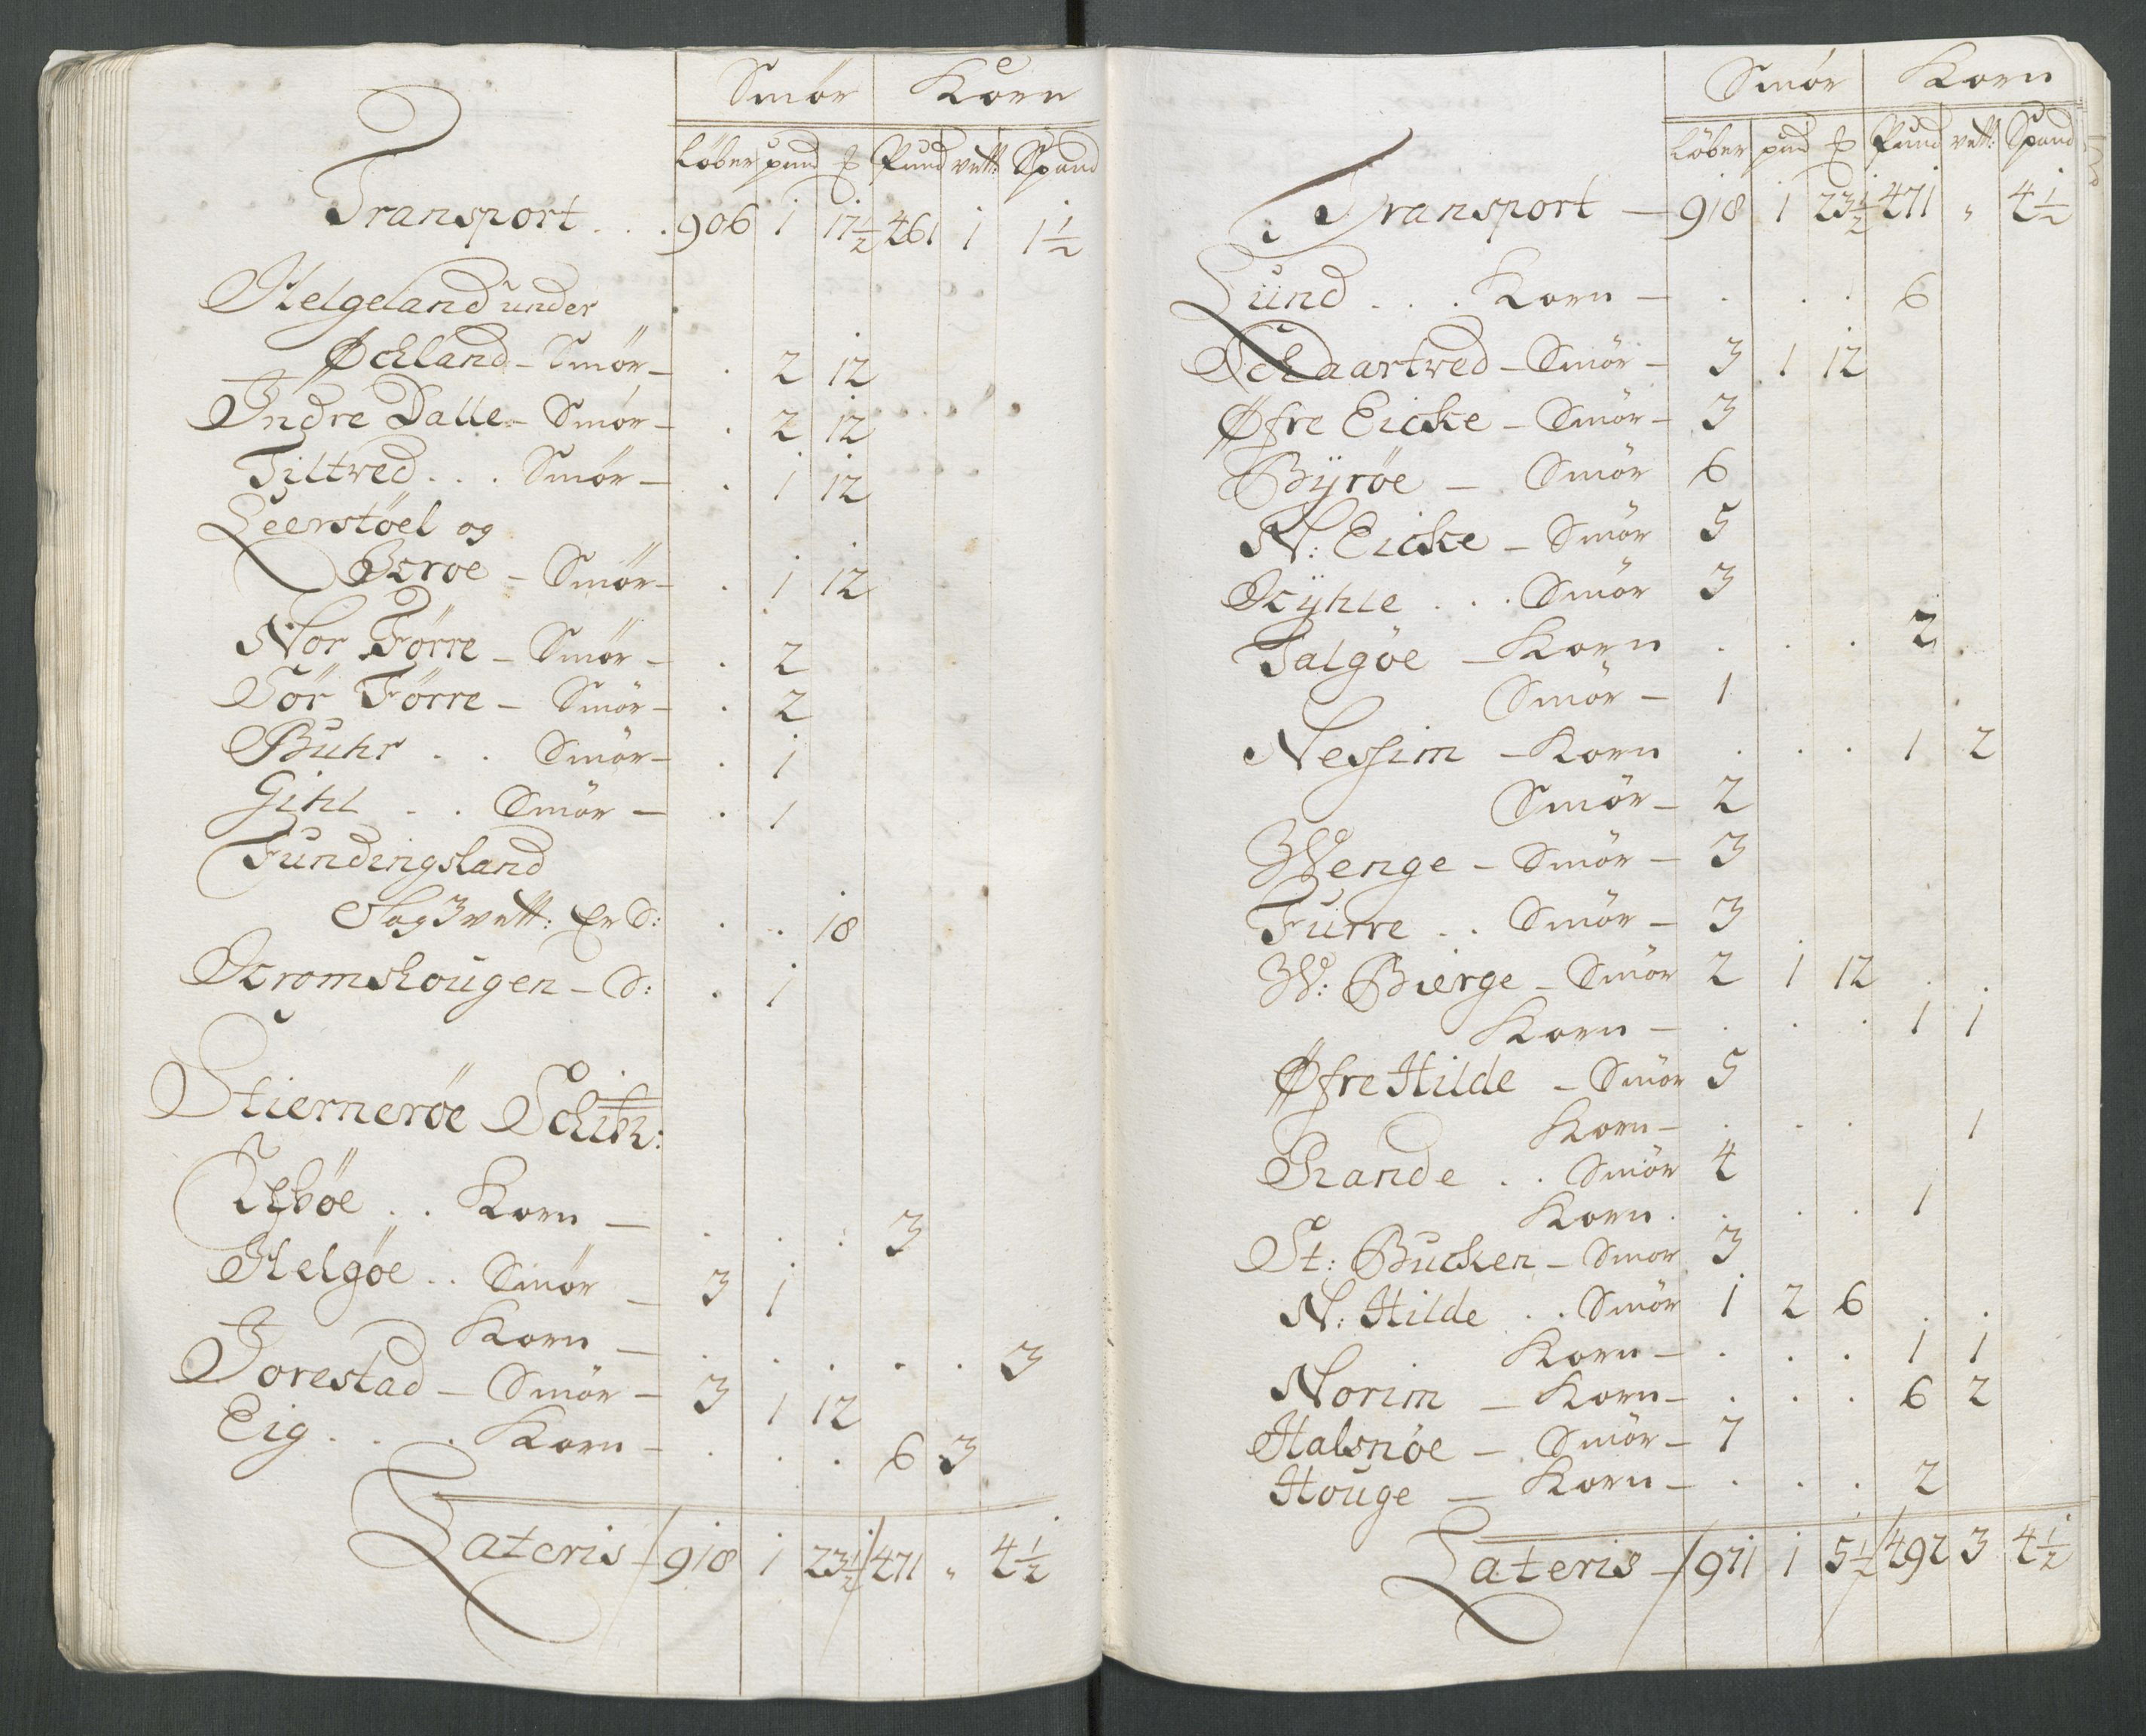 Smør Korn
Løber pund ℔ Pund vett: Spand
Transport . . . 906 1 17½ 461 1 1½
Helgeland under
Øchland - Smør - . 2 12
Indre Dalle - Smør - . 2 12
Tiltved . . . Smør - . 1 12
Leerstøel og
Boroe - Smør - . 1 12
Nor Førre - Smør - . 2
Sør Førre - Smør - . 2
Buhr . . Smør - . 1
Gihl . . Smør - . 1
Fundingsland
Sag 3 vett: Er S: . . 18
Schomshougen - S: . 1
Stiernerøe Schibr:
Eshøe . . Korn - . . . 3
Helgøe . . Smør - 3 1
Korn - . . . . . 3
Jorestad - Smør - 3 1 12
Eig . . . Korn - . . . 6 3
Lateris - 918 1 23½ 471 " 4½
Smør Korn
Løber pud ℔ Pund vett: Spand
Transport - 918 1 23½ 471 " 4½
Lund . . . Korn - . . . 6
Schaartved - Smør - 3 1 12
Øfre Eicke - Smør - 3
Byrøe - Smør 6
N: Eicke - Smør 5
Kyhle . . . Smør 3
Talgøe - Korn . . . 2
Smør - 1
Nessim - Korn . . . 1 2
Smør - 2
Wenge - Smør - 3
Furre . . Smør - 3
W: Bierge - Smør 2 1 12
Korn - . . . 1 1
Øfre Hilde - Smør 5
Korn - . . . 1
Rande . . Smør 4
Korn . . . . 1
St: Bucken - Smør 3
N: Hilde . . Smør 1 2 6
Korn - . . . 1 1
Norim - Korn - . . . 6 2
Halsnøe - Smør - 7
Houge - Korn - . . . 2
Lateris - 971 1 5½ 492 3 4½